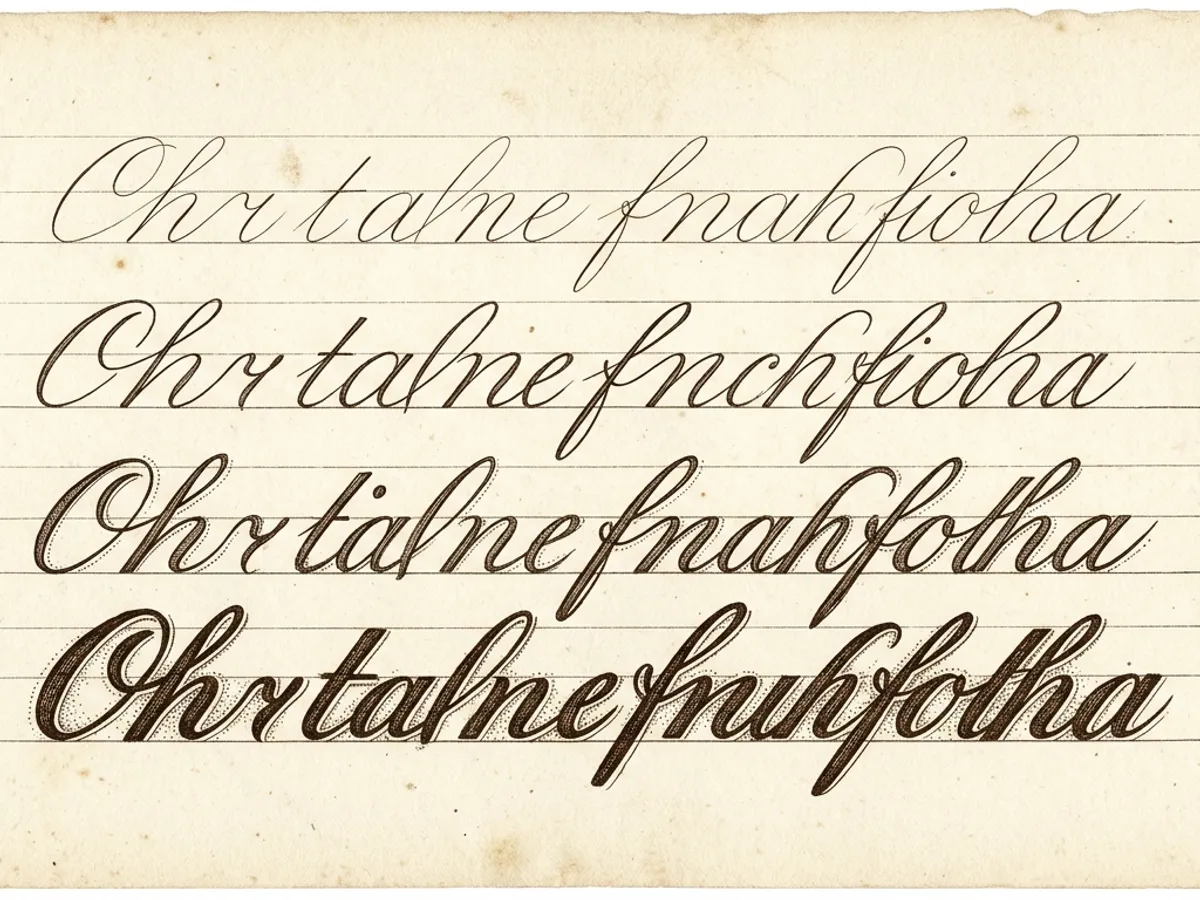 Chr talne fnahfioha
Chr talne fnchfioha
Chr talne fnahfotha
Chr talne fnuhfotha